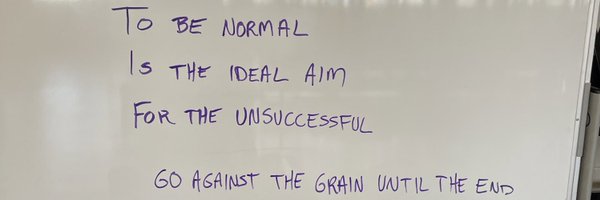 To BE NORMAL
Is THE IDEAL AIM
FOR THE UNSUCCESSFUL
GO AGAINST THE GRAIN UNTIL THE END